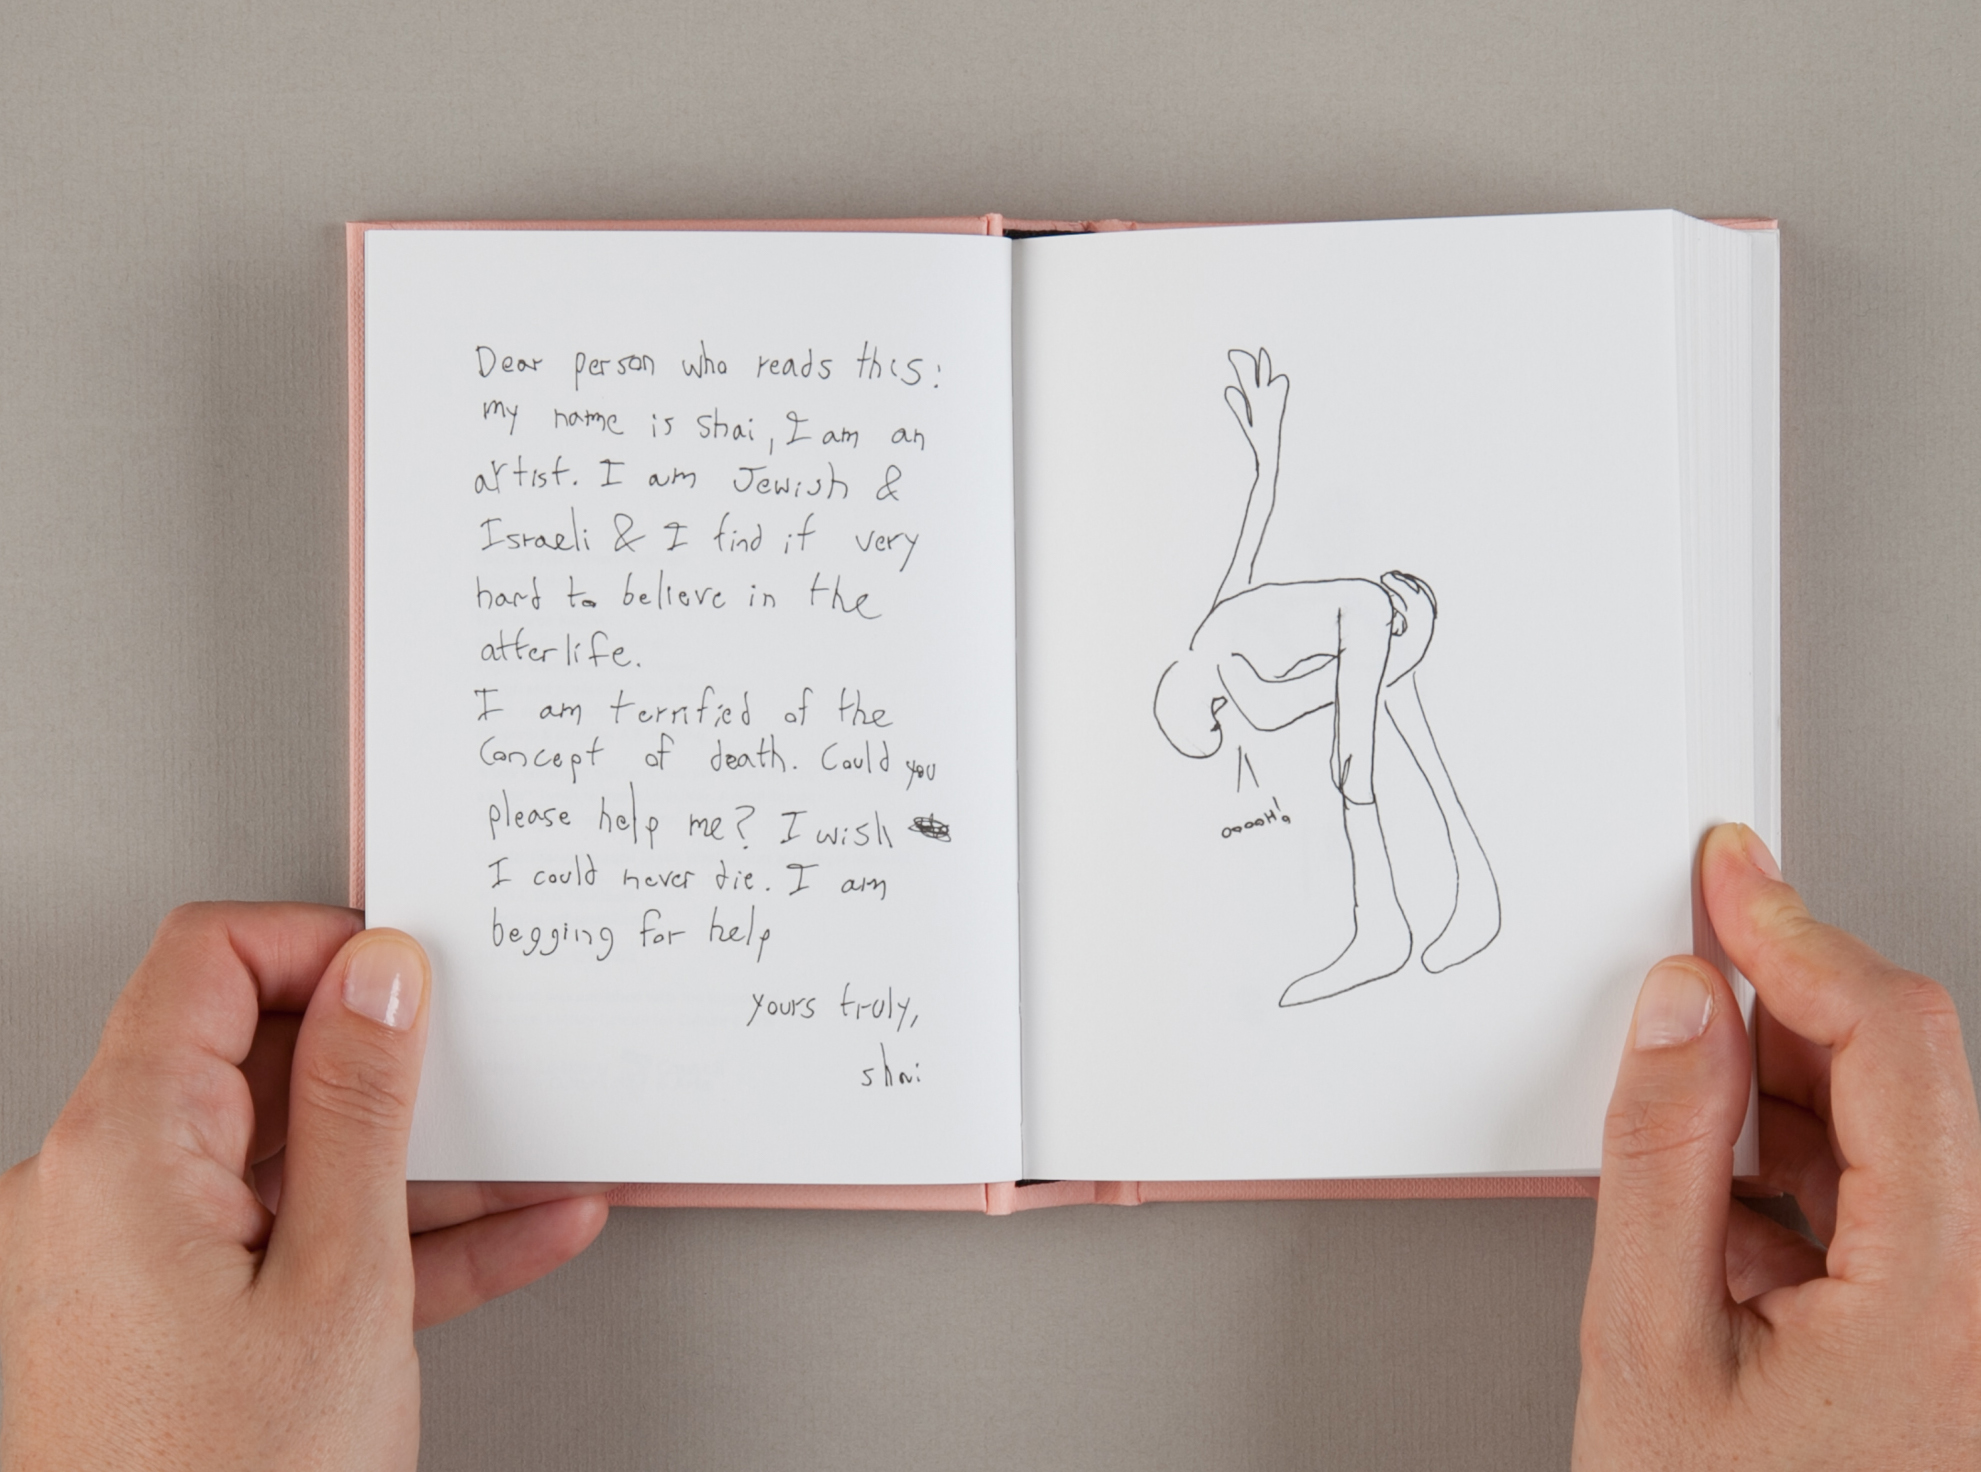 Dear person who reads this:
my name is shai, I am an
artist. I am Jewish &
Israeli & I find it very
hard to believe in the
afterlife.
I am terrified of the
concept of death. Could you
please help me? I wish
I could never die. I am
begging for help
yours truly,
shai
ooooH!